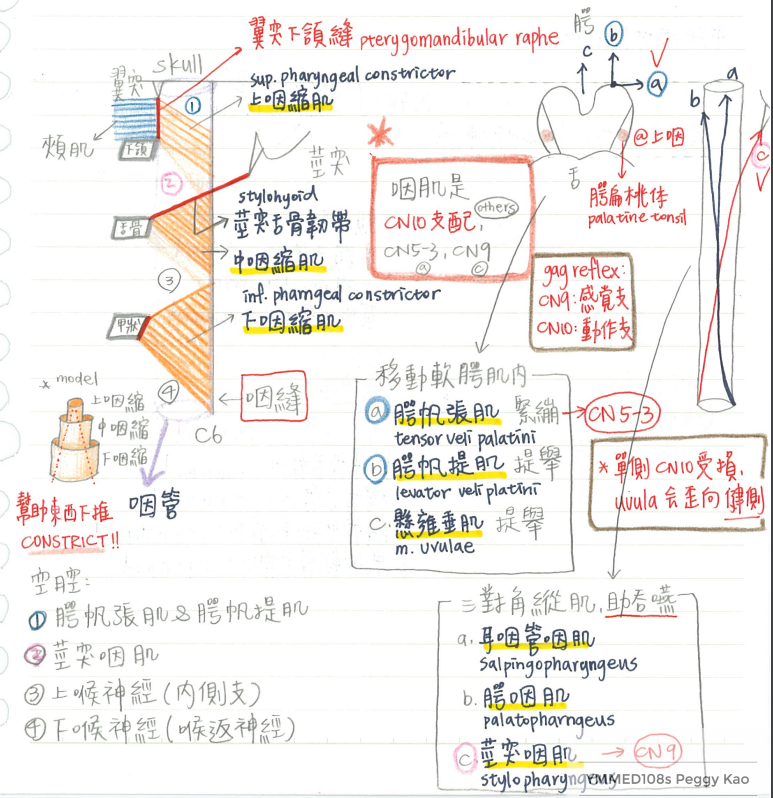 翼突下頜縫 pterygomandibular raphe
skull
翼突
①
sup. pharyngeal constrictor
上咽縮肌
頰肌
下頜
②
莖突
stylohyoid
莖突舌骨韌帶
舌骨
中咽縮肌
③
inf. phamgeal constrictor
下咽縮肌
甲狀
④
咽縫
C6
* model
上咽縮
中咽縮
下咽縮
幫助東西下推
CONSTRICT!!
咽管
空腔:
① 腭帆張肌 & 腭帆提肌
② 莖突咽肌
③ 上喉神經(內側支)
④ 下喉神經(喉返神經)
咽肌是 others
CN10 支配,
CN5-3, CN9
a c
腭
c b a
@上咽
舌
腭扁桃体
palatine tonsil
gag reflex:
CN9: 感覺支
CN10: 動作支
移動軟腭肌內
a 腭帆張肌 緊繃 → CN5-3
tensor veli palatini
b 腭帆提肌 提舉
levator veli platini
c. 懸雍垂肌 提舉
m. uvulae
a
b
c
* 單側CN10受損,
uvula 会歪向健側
三對角縱肌,助吞嚥
a. 耳咽管咽肌
salpingopharyngeus
b. 腭咽肌
palatopharngeus
c 莖突咽肌 → CN9
stylopharyngeus
YMMED108s Peggy Kao